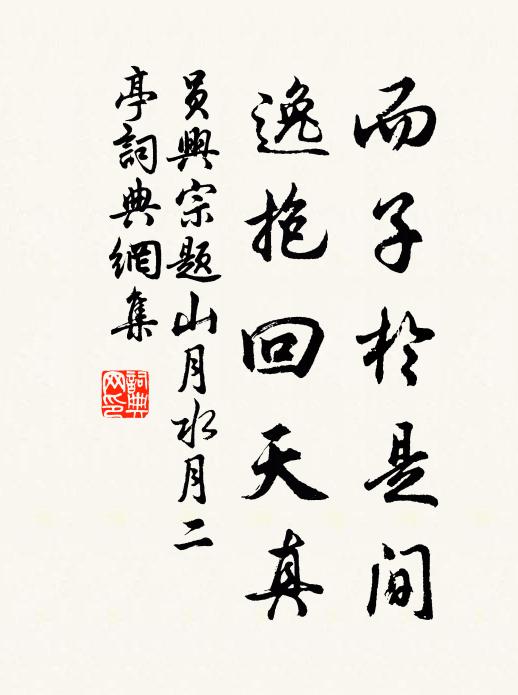 而子於是间
逸抱回天真
员興宗题山月水月二
亭詞典網集
詞典
网印